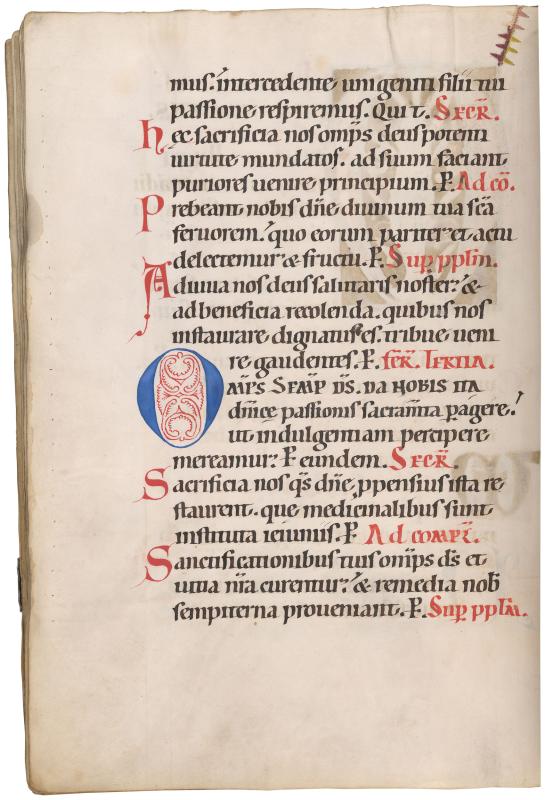 mus. intercedente unigeniti filii tui
passione respiremus. Qui t. SECR̄.
hec sacrificia nos omp̄s deus potenti
uirtute mundatos. ad suum faciant
puriores uenire principium. P̱. Ad cō.
Prebeant nobis dn̄e diuinum tua sc̄a
feruorem. quo eorum pariter et actu
delectemur & fructu. P̱. Sup̱ pplm̄.
Adiuua nos deus salutaris noster. &
ad beneficia recolenda. quibus nos
instaurare dignatus es. tribue ueni
re gaudentes. P̱. fer̄. TERTIA.
OMP̄S SEMP̱ DS̄. DA NOBIS ITA
dn̄ice passionis sacram̄ta p̱agere.
ut indulgentiam percipere
mereamur. P̱ eundem. SECR̄.
Sacrificia nos q̄s dn̄e ꝓpensius ista re
staurent. que medicinalibus sunt
instituta ieiuniis. P̱ Ad compl̄.
Sanctificationibus tuis omp̄s ds̄ et
uitia nr̄a curentur. & remedia nob̄
sempiterna proueniant. P̱. Sup̱ pplm̄.